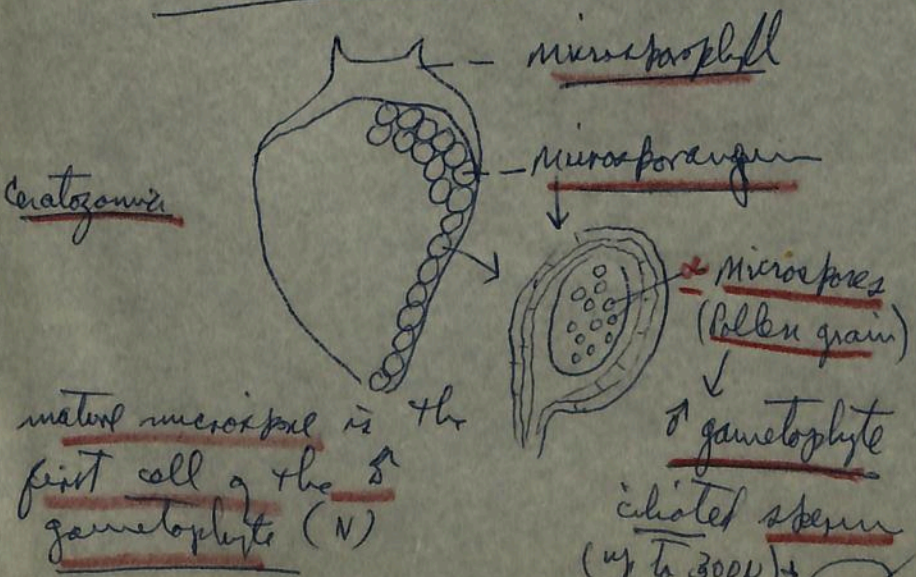 microsporophyll
microsporangium
Ceratozamia
microspores
(Pollen grain)
mature microspore is the
first cell of the ♂
gametophyte (N)
♂ gametophyte
ciliated sperm
(up to 300μ)